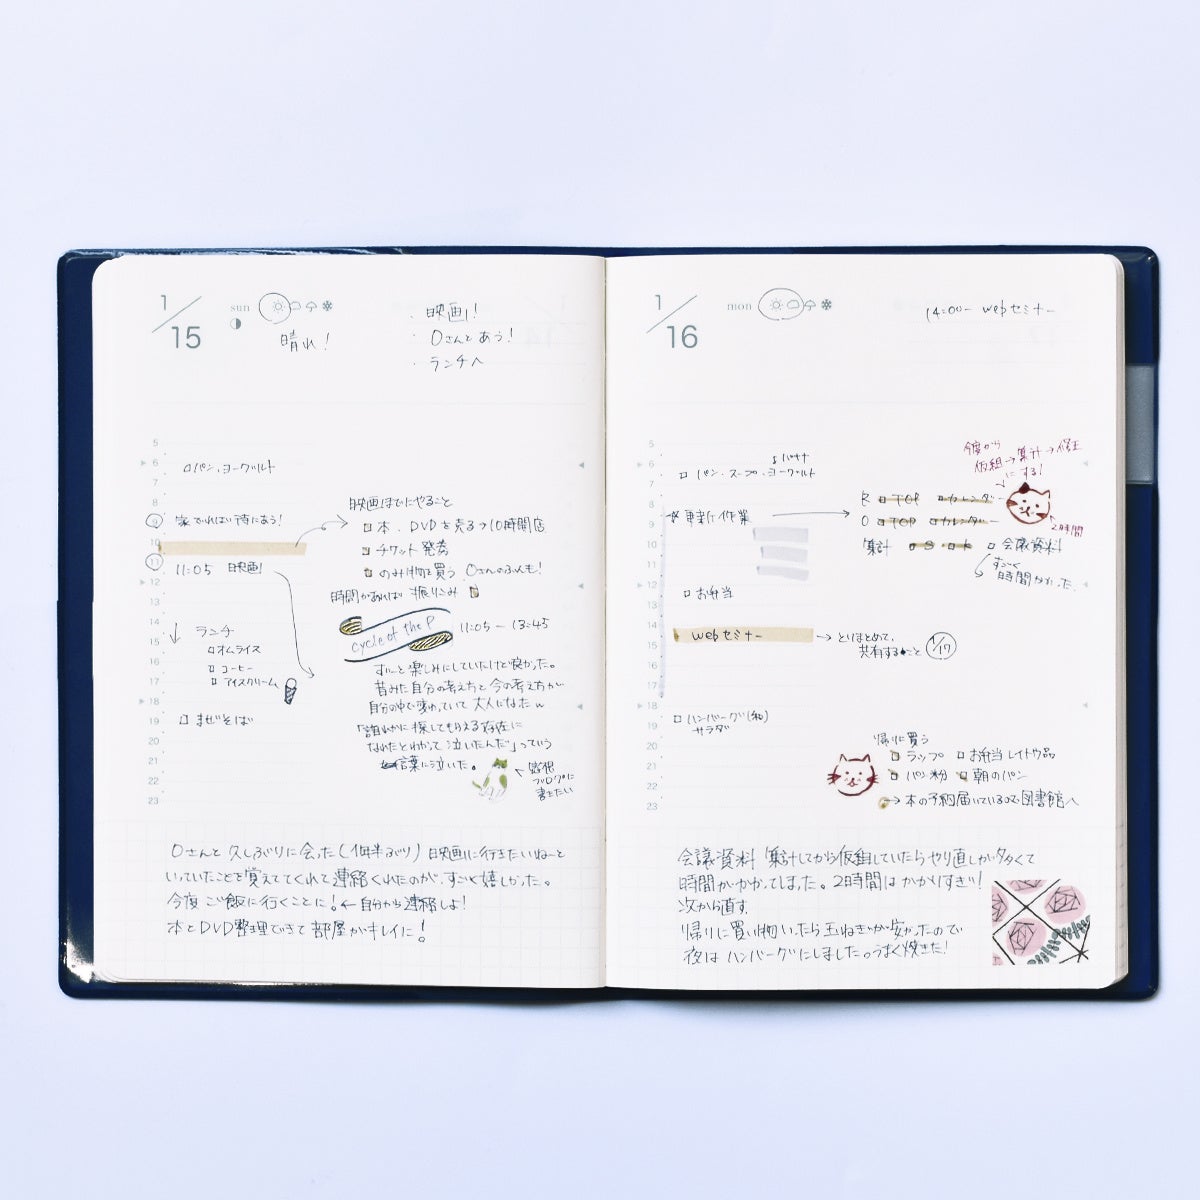 1/15 sun
晴れ!
・映画!
・Oさんとあう!
・ランチへ
5
6
7
8
9
10
11
12
13
14
15
16
17
18
19
20
21
22
23
パン、ヨーグルト
11:05 映画!
ランチ
オムライス
コーヒー
アイスクリーム
まぜそば
映画までにやること
本、DVDを売る→10時開店
チケット発券
のみ物を買う Oさんのぶんも!
時間があれば 振りこみ
cycle of the P
11:05 - 13:45
ずっと楽しみにしていたけど良かった。
昔みた自分の考え方と今の考え方が
自分の中で変わっていて大人になったw
「誰かに探してもらえる存在に
なれたとわかって泣いたんだ」っていう
言葉に泣いた。
←感想
ブログに
書きたい
Oさんと久しぶりに会った(1年半ぶり)映画に行きたいねーと
いっていたことを覚えててくれて連絡くれたのがすごく嬉しかった。
今度ご飯に行くことに!←自分から連絡しよ!
本とDVD整理できて部屋がキレイに!
1/16 mon
14:00- webセミナー
5
6
7
8
9
10
11
12
13
14
15
16
17
18
19
20
21
22
23
バナナ
パン、スープ、ヨーグルト
更新作業
お弁当
webセミナー
→とりまとめて、
共有すること 1/17
ハンバーグ(和)
サラダ
今度から
仮組→集計→修正
にする!
TOP カレンダー
O TOP カレンダー
集計 会議資料
2時間
すごく
時間かかった
帰りに買う
ラップ お弁当レイトウ品
パン粉 朝のパン
→本の予約届いているので図書館へ
会議資料 集計してから仮組していたらやり直しが多くて
時間がかかってしまった。2時間はかかりすぎ!
次から直す
帰りに買い物いったら玉ねぎが安かったので
夜はハンバーグにしました。うまく焼きた!